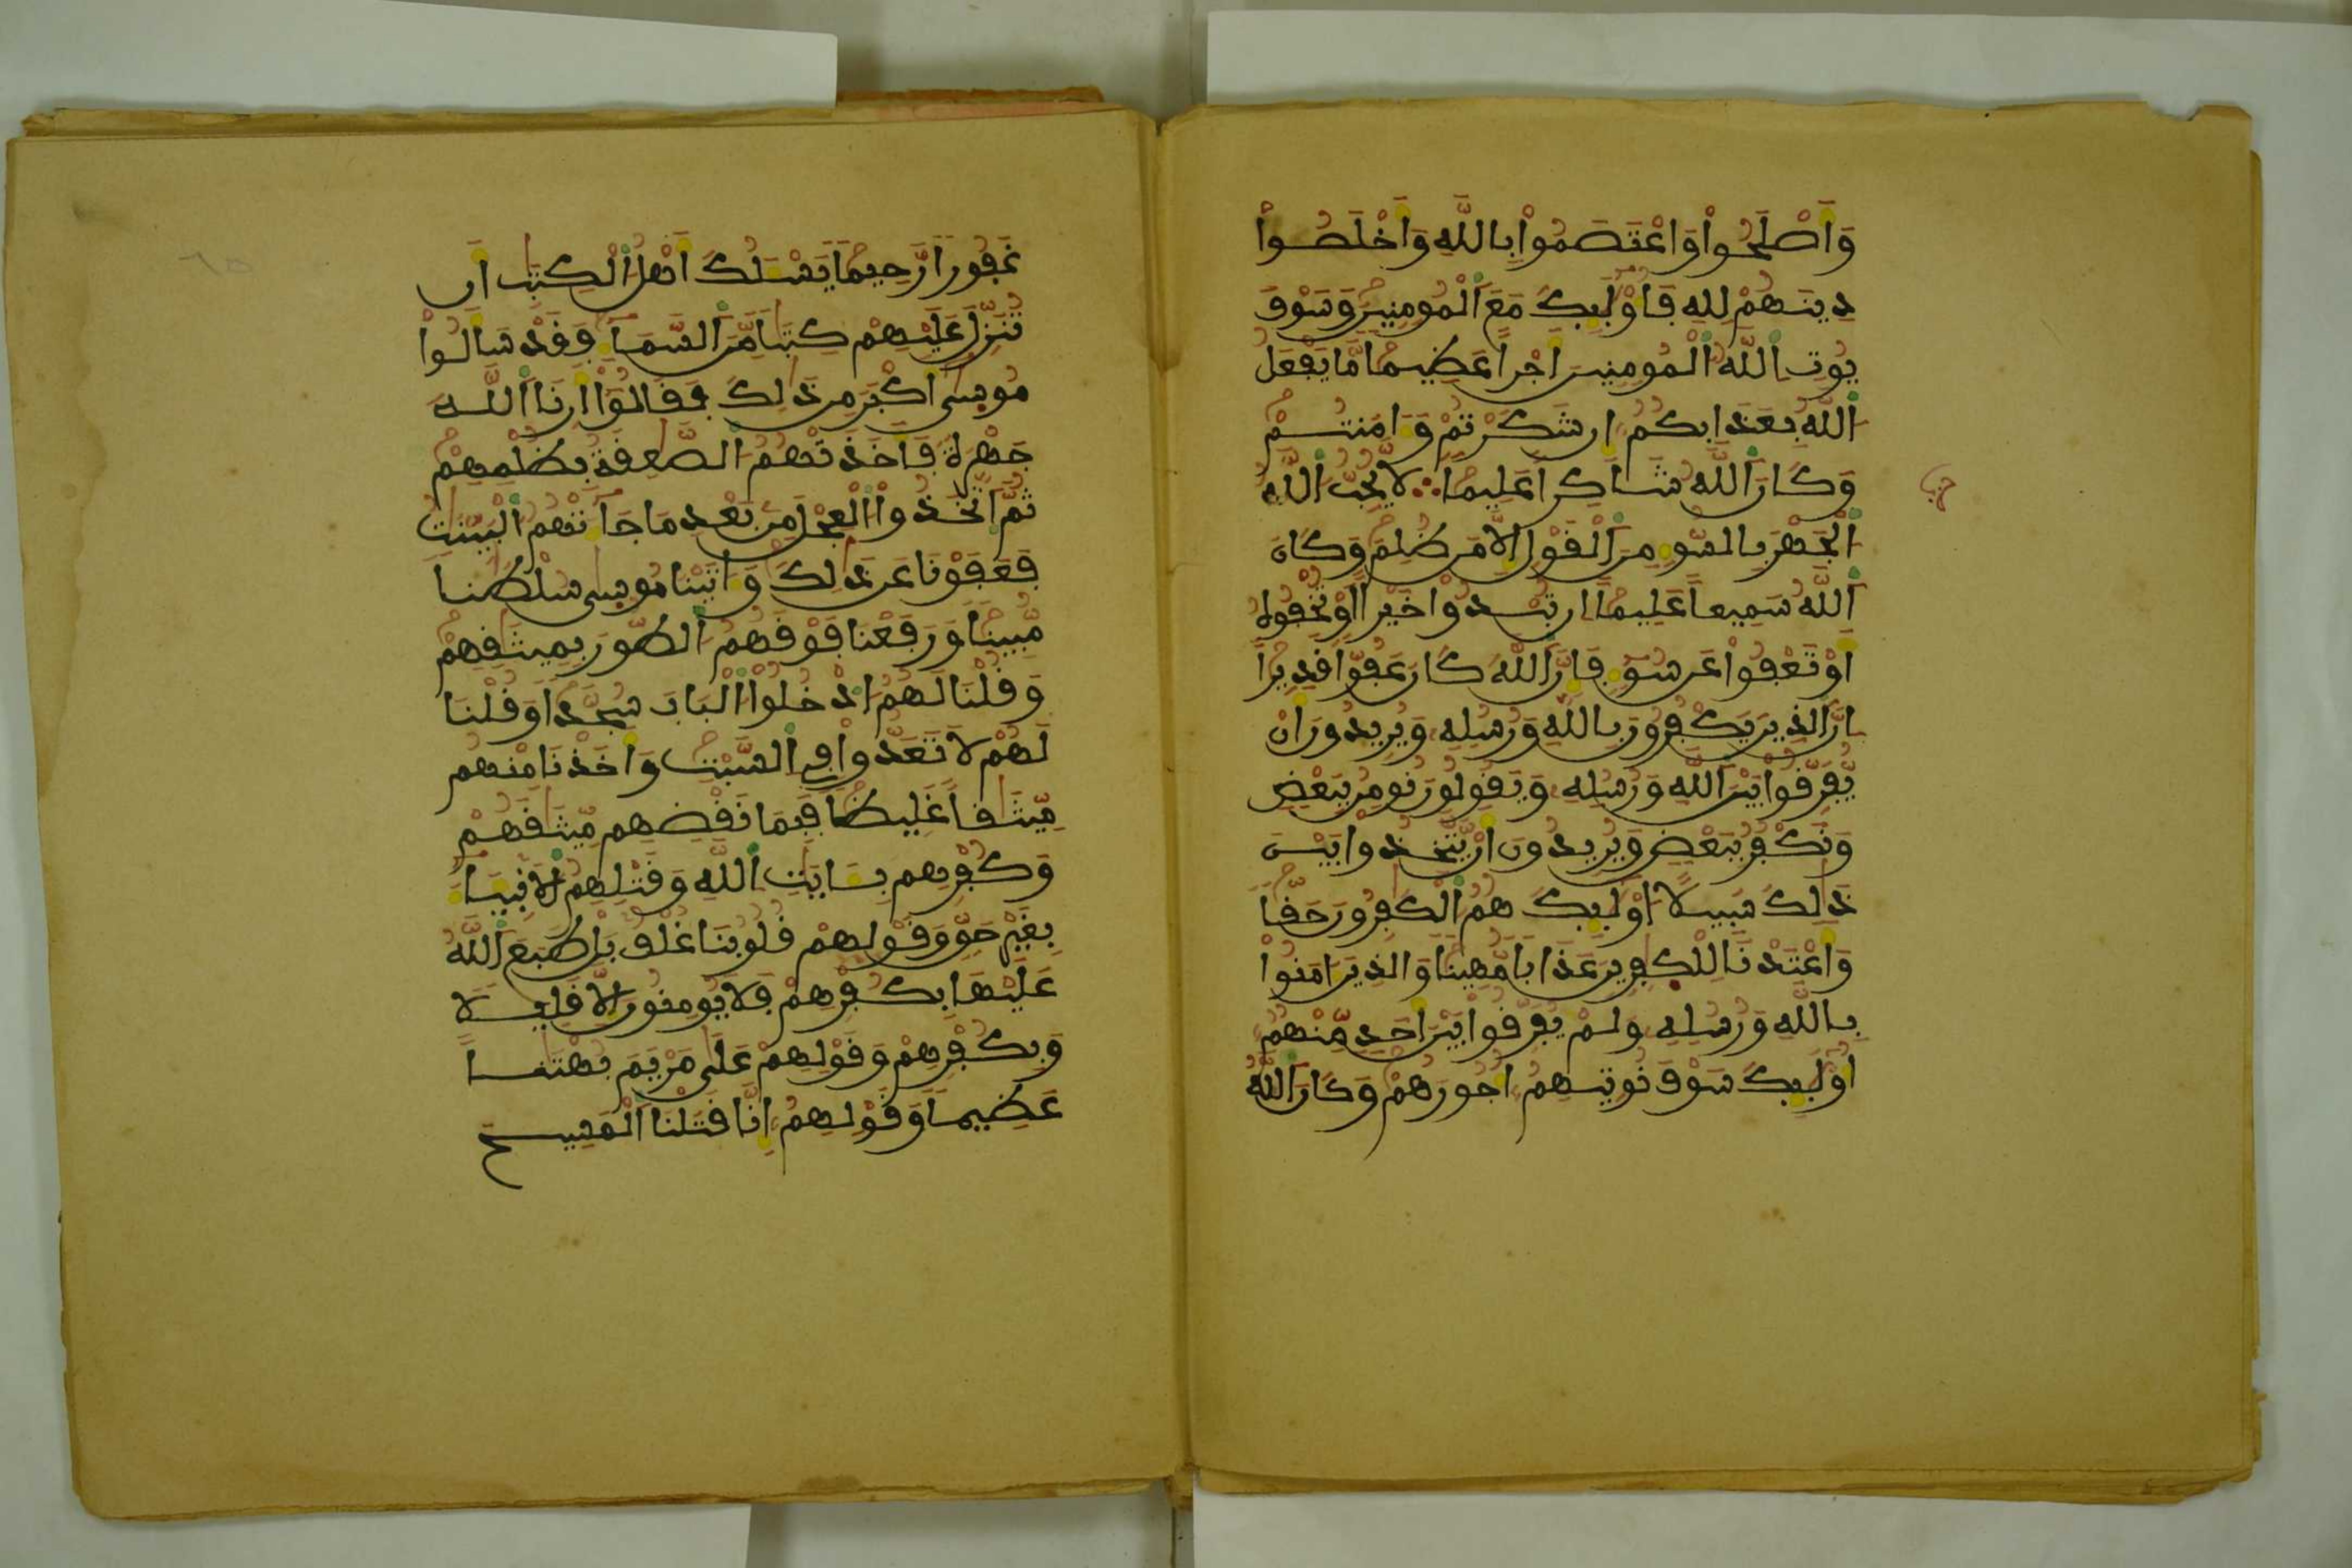 وَأَصْلَحُواْ وَاعْتَصَمُواْ بِاللَّهِ وَأَخْلَصُواْ
دِينَهُمْ لِلهِ فَأُوْلَٰٓئِكَ مَعَ اَ۬لْمُومِنِينَ وَسَوْفَ
يُوتِ اِ۬للَّهُ اُ۬لْمُومِنِينَ أَجْراً عَظِيماً مَّا يَفْعَلُ
اُ۬للَّهُ بِعَذَابِكُمُ إِن شَكَرْتُمْ وَءَامَنتُمْ
وَكَانَ اَ۬للَّهُ شَاكِراً عَلِيماً لَّا يُحِبُّ اُ۬للَّهُ
اُ۬لْجَهْرَ بِالسُّوٓءِ مِنَ اَ۬لْقَوْلِ إِلَّا مَن ظُلِمَ وَكَانَ
اَ۬للَّهُ سَمِيعاً عَلِيماً إِن تُبْدُواْ خَيْراً أَوْ تُخْفُوهُ
أَوْ تَعْفُواْ عَن سُوٓءٍ فَإِنَّ اَ۬للَّهَ كَانَ عَفُوّاً قَدِيراً
إِنَّ اَ۬لذِينَ يَكْفُرُونَ بِاللَّهِ وَرُسُلِهِ وَيُرِيدُونَ أَنْ
يُّفَرِّقُواْ بَيْنَ اَ۬للَّهِ وَرُسُلِهِ وَيَقُولُونَ نُومِنُ بِبَعْضٍ
وَنَكْفُرُ بِبَعْضٍ وَيُرِيدُونَ أَنْ يَّتَّخِذُواْ بَيْنَ
ذَٰلِكَ سَبِيلاً أُوْلَٰٓئِكَ هُمُ اُ۬لْكَٰفِرُونَ حَقّاً
وَأَعْتَدْنَا لِلْكَٰفِرِينَ عَذَاباً مُّهِيناً وَالذِينَ ءَامَنُواْ
بِاللَّهِ وَرُسُلِهِ وَلَمْ يُفَرِّقُواْ بَيْنَ أَحَدٍ مِّنْهُمُ
أُوْلَٰٓئِكَ سَوْفَ نُوتِيهِمُ أُجُورَهُمْ وَكَانَ اَ۬للَّهُ
حزب
غَفُوراً رَّحِيماً يَسْـَٔلُكَ أَهْلُ اُ۬لْكِتَٰبِ أَن
تُنَزِّلَ عَلَيْهِمْ كِتَٰباً مِّنَ اَ۬لسَّمَآءِ فَقَدْ سَأَلُواْ
مُوسَىٰ أَكْبَرَ مِن ذَٰلِكَ فَقَالُوٓاْ أَرِنَا اَ۬للَّهَ
جَهْرَةً فَأَخَذَتْهُمُ اُ۬لصَّٰعِقَةُ بِظُلْمِهِمْ
ثُمَّ اَ۪تَّخَذُواْ اُ۬لْعِجْلَ مِنۢ بَعْدِ مَا جَآءَتْهُمُ اُ۬لْبَيِّنَٰتُ
فَعَفَوْنَا عَن ذَٰلِكَ وَءَاتَيْنَا مُوسَىٰ سُلْطَٰناً
مُّبِيناً وَرَفَعْنَا فَوْقَهُمُ اُ۬لطُّورَ بِمِيثَٰقِهِمْ
وَقُلْنَا لَهُمُ اُ۟دْخُلُواْ اُ۬لْبَابَ سُجَّداً وَقُلْنَا
لَهُمْ لَا تَعَدُّواْ فِى اِ۬لسَّبْتِ وَأَخَذْنَا مِنْهُم
مِّيثَٰقاً غَلِيظاً فَبِمَا نَقْضِهِم مِّيثَٰقَهُمْ
وَكُفْرِهِم بِـَٔايَٰتِ اِ۬للَّهِ وَقَتْلِهِمُ اُ۬لَانۢبِيَآءَ
بِغَيْرِ حَقٍّ وَقَوْلِهِمْ قُلُوبُنَا غُلْفٌ بَلْ طَبَعَ اَ۬للَّهُ
عَلَيْهَا بِكُفْرِهِمْ فَلَا يُومِنُونَ إِلَّا قَلِيلاً
وَبِكُفْرِهِمْ وَقَوْلِهِمْ عَلَىٰ مَرْيَمَ بُهْتَٰناً
عَظِيماً وَقَوْلِهِمُ إِنَّا قَتَلْنَا اَ۬لْمَسِيحَ